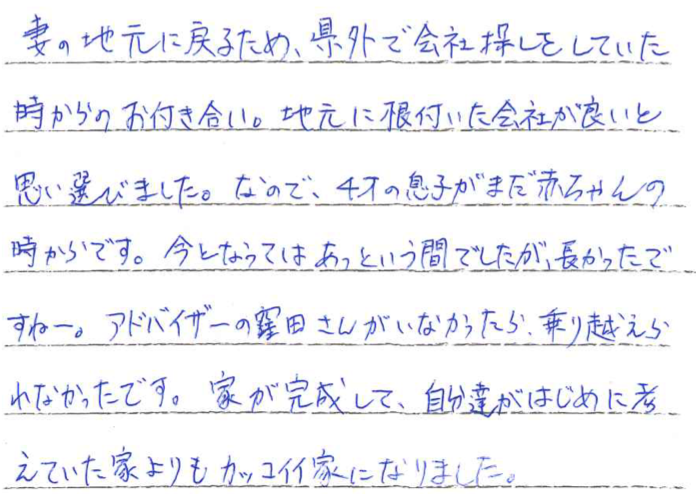 妻の地元に戻るため、県外で会社探しをしていた
時からのお付き合い。地元に根付いた会社が良いと
思い選びました。なので、4才の息子がまだ赤ちゃんの
時からです。今となってはあっという間でしたが、長かったで
すねー。アドバイザーの窪田さんがいなかったら、乗り越えら
れなかったです。家が完成して、自分達がはじめに考
えていた家よりもカッコイイ家になりました。